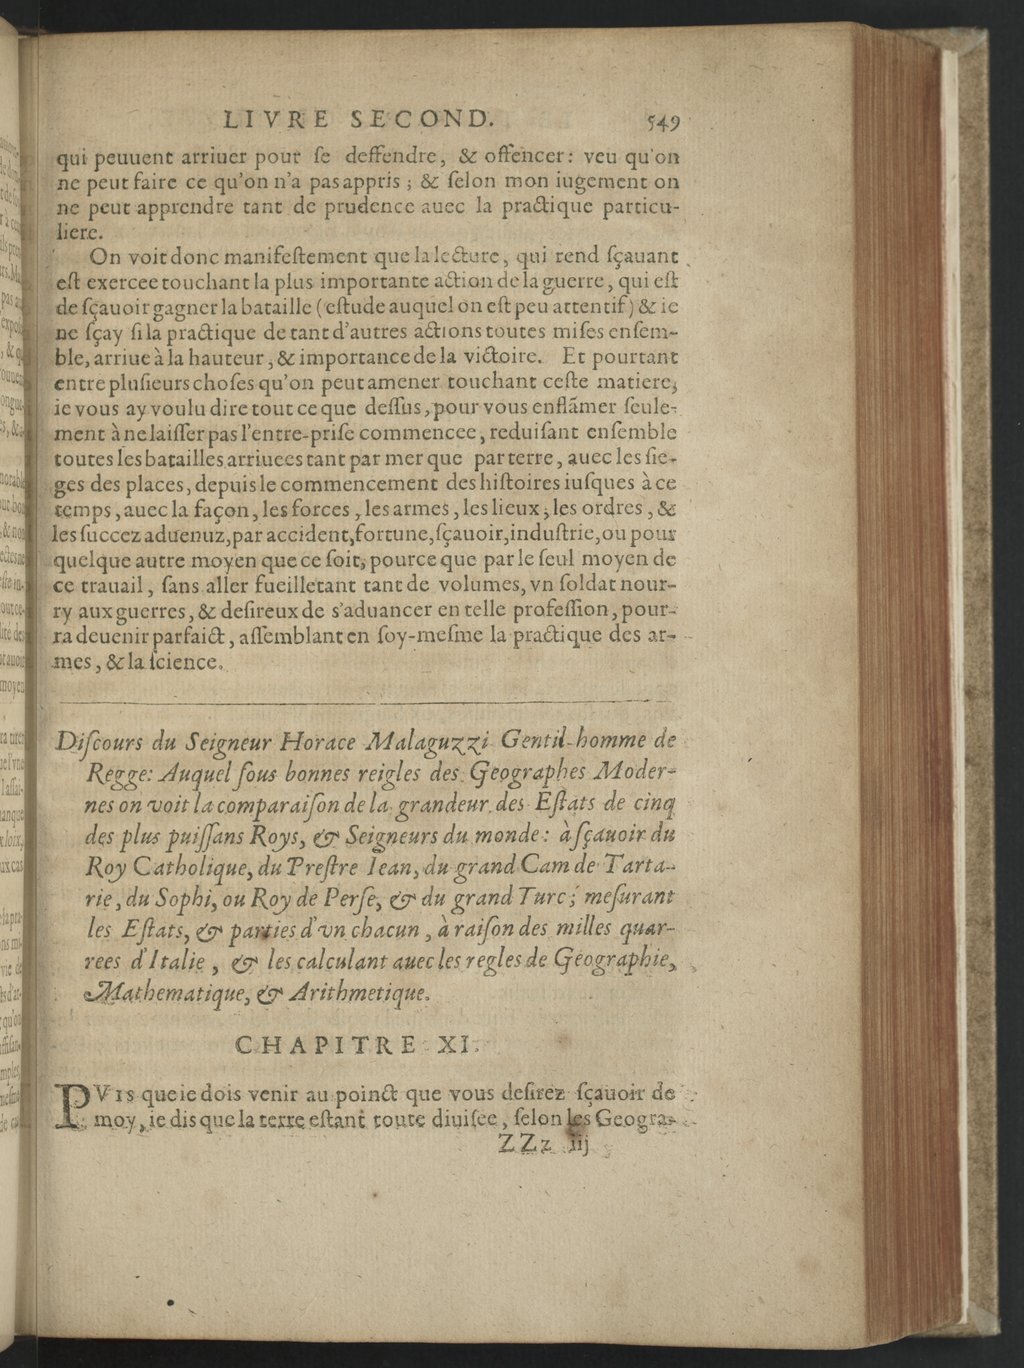 LIVRE SECOND. 549
qui peuuent arriuer pour ſe deffendre, & offencer: veu qu'on
ne peut faire ce qu'on n'a pas appris ; & ſelon mon iugement on
ne peut apprendre tant de prudence auec la practique particu-
liere.
On voit donc manifeſtement que la lecture, qui rend ſçauant
eſt exercee touchant la plus importante action de la guerre, qui eſt
de ſçauoir gagner la bataille (eſtude auquel on eſt peu attentif) & ie
ne ſçay ſi la practique de tant d'autres actions toutes miſes enſem-
ble, arriue à la hauteur, & importance de la victoire. Et pourtant
entre pluſieurs choſes qu'on peut amener touchant ceſte matiere,
ie vous ay voulu dire tout ce que deſſus, pour vous enflãmer ſeule-
ment à ne laiſſer pas l'entre-priſe commencee, reduiſant enſemble
toutes les batailles arriuees tant par mer que par terre, auec les ſie-
ges des places, depuis le commencement des hiſtoires iuſques à ce
temps, auec la façon, les forces, les armes, les lieux, les ordres, &
les ſuccez aduenuz, par accident, fortune, ſçauoir, induſtrie, ou pour
quelque autre moyen que ce ſoit, pource que par le ſeul moyen de
ce trauail, ſans aller fueilletant tant de volumes, vn ſoldat nour-
ry aux guerres, & deſireux de s'aduancer en telle profeſſion, pour-
ra deuenir parfaict, aſſemblant en ſoy-meſme la practique des ar-
mes, & la ſcience.
Diſcours du Seigneur Horace Malaguzzi Gentil-homme de
Regge: Auquel ſous bonnes reigles des Geographes Moder-
nes on voit la comparaiſon de la grandeur des Eſtats de cinq
des plus puiſſans Roys, & Seigneurs du monde: à ſçauoir du
Roy Catholique, du Preſtre Iean, du grand Cam de Tarta-
rie, du Sophi, ou Roy de Perſe, & du grand Turc; meſurant
les Eſtats, & parties d'vn chacun, à raiſon des milles quar-
rees d'Italie, & les calculant auec les regles de Geographie,
Mathematique, & Arithmetique.
CHAPITRE XI.
PVIS que ie dois venir au poinct que vous deſirez ſçauoir de
moy, ie dis que la terre eſtant toute diuiſee, ſelon les Geogra-
ZZz iij